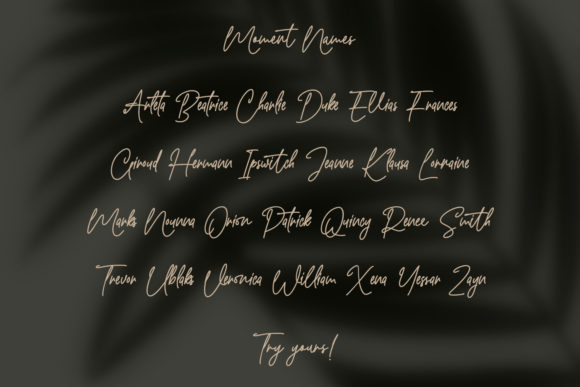 Moment Names
Arleta Beatrice Charlie Duke Ellias Frances
Giroud Hermann Ipswitch Jeanne Klausa Lorraine
Marks Nounna Orion Patrick Quincy Renee Smith
Trevor Ublaks Veronica William Xena Yessar Zayn
Try yours!